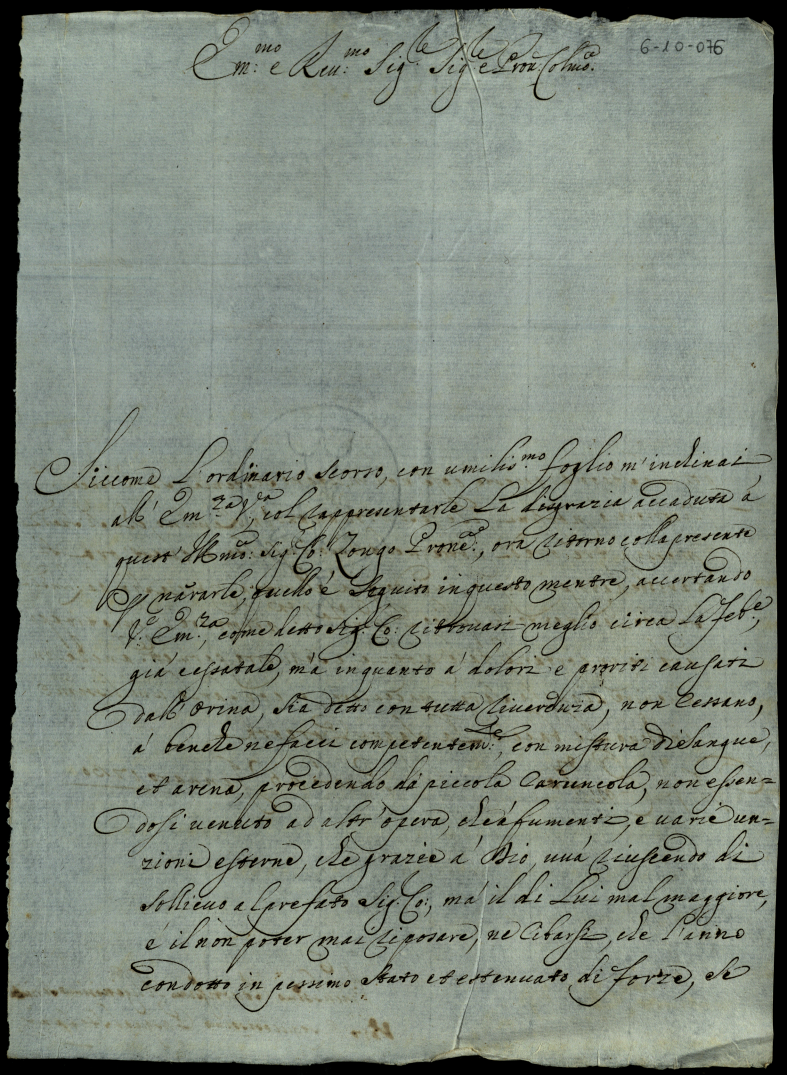 6-10-076
Em:mo e Reu:mo Sig:le Sig:le e Pron: Colmo:
Siccome L'ordinario scorso, con umiliss:mo foglio m'inclinai
all' Em:za V:a, col rappresentarle La disgrazia accaduta à
quest' Illmo: Sig: Co: Zongo Prone:, ora ritorno colla presente
narrarle, quello è seguito in questo mentre, accertando
V:a Em:za, come detto Sig: Co: ritrouasi meglio circa La febe,
già cessatale, mà in quanto à dolori e proriti causati
dall' orina, sia detto con tutta riuerenza, non cessano,
à benche ne facci competentem:te, con mistura di sangue,
et arena, procedendo dà piccola Caruncola, non essen=
dosi uenuto ad altr' opera, che à fumenti, e uarie un=
zioni esterne, che grazie à Dio, uuà riuscendo di
sollieuo al prefato Sig: Co:, mà il di Lui mal maggiore,
è il non poter mai riposare, ne Cibarsi, che l'anno
condotto in pessimo stato et estenuato di forze, se